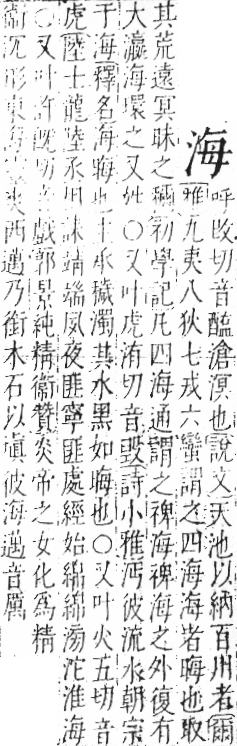 海
呼改切音醢滄溟也說文天池以納百川者爾
雅九夷八狄七戎六蠻謂之四海海者晦也取
其荒遠冥昧之稱初學記凡四海通謂之裨海裨海之外復有
大瀛海環之又姓〇又叶虎洧切音毀詩小雅沔彼流水朝宗
于海釋名海晦也主承穢濁其水黑如晦也〇又叶火五切音
虎陸士龍陸丞相誄靖端夙夜匪寧匪處經始綿綿滂沱淮海
〇又叶許旣切音戲郭景純精衞贊炎帝之女化爲精
衞沉形東海爽西邁乃銜木石以塡彼海邁音厲